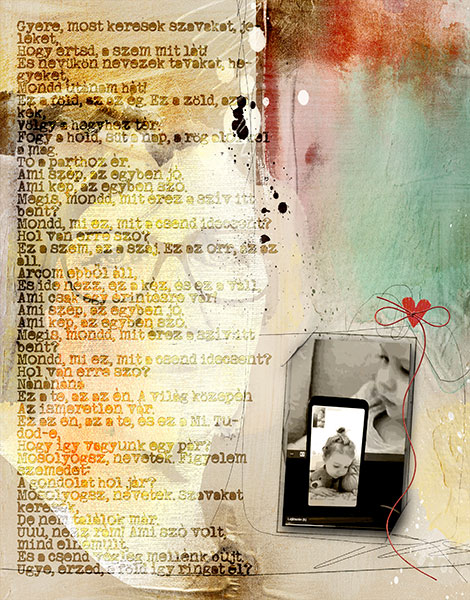 Gyere, most keresek szavakat, je
leket,
Hogy értsd, a szem mit lát!
És nevükön nevezek tavakat, he-
gyeket,
Mondd utánam hát!
Ez a föld, az az ég. Ez a zöld, az a
kék,
Völgy a hegyhez tér.
Fogy a hold, süt a nap, a rög alól kel
a mag
Tó a parthoz ér.
Ami szép, az egyben jó,
Ami kép, az egyben szó.
Mégis, mondd, mit érez a szív itt
bent?
Mondd, mi ez, mit a csend idecsent?
Hol van erre szó?
Ez a szem, az a száj. Ez az orr, az az
áll,
Arcom ebből áll,
És ide nézz, ez a kéz, és ez a váll
Ami csak egy érintésre vár!
Ami szép, az egyben jó,
Ami kép, az egyben szó.
Mégis, mondd, mit érez a szív itt
bent?
Mondd, mi ez, mit a csend idecsent?
Hol van erre szó?
Nananana
Ez a te, az az én. A világ közepén
Az ismeretlen vár,
Ez az én, az a te, és ez a Mi Tu-
dod-e,
Hogy így vagyunk egy pár?
Mosolyogsz, nevetek. Figyelem
szemedet:
A gondolat hol jár?
Mosolyogsz, nevetek. Szavakat
keresek,
De nem találok már.
Uúú, nézz rám! Ami szó volt,
mind elnémult,
És a csend végleg mellénk bújt,
Ugye, érzed, a föld így ringat el?